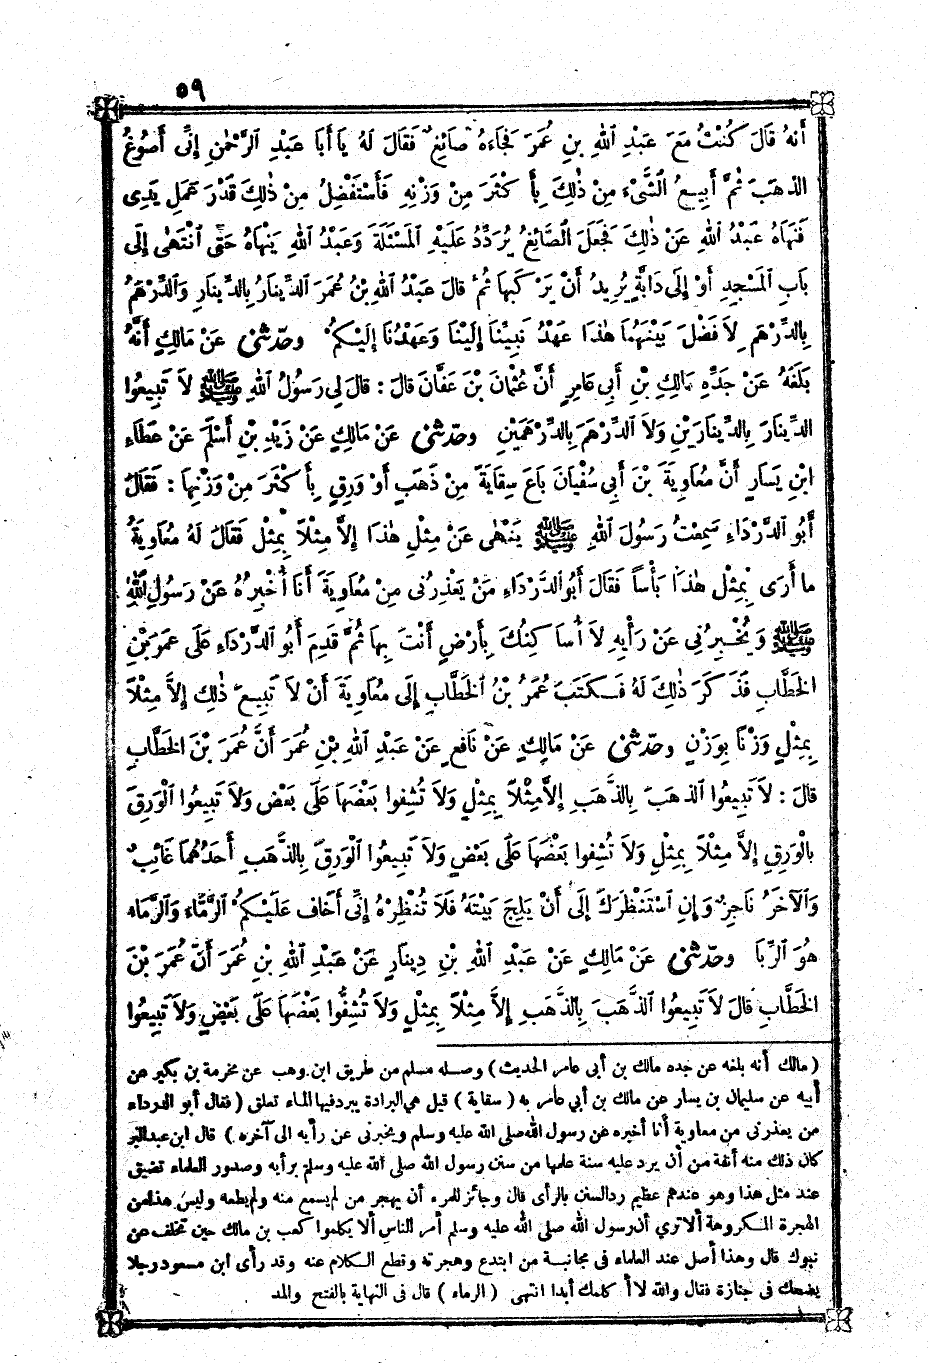 ٥٩
أَنهُ قَالَ كُنْتُ مَعَ عَبْدِ اللهِ بنِ عُمَرَ فَجَاءَهُ صَائِغٌ فَقَالَ لَهُ يَا أَبَا عَبْدِ الرَّحْمٰنِ إِنِّى أَصُوغُ
الذهَبَ ثُمَّ أَبِيعُ الشَّىْءَ مِنْ ذٰلِكَ بِأَ كْثَرَ مِنْ وَزْنِهِ فَأَسْتَفْضِلُ مِنْ ذٰلِكَ قَدْرَ عَمَلِ يَدِى
فَنَهَاهُ عَبْدُ اللهِ عَنْ ذٰلِكَ فَجَعَلَ الصَّائِغُ يُرَدِّدُ عَلَيْهِ الْمَسْئَلَةَ وَعَبْدُ اللهِ يَنْهَاهُ حَتَّى انْتَهَى إِلَى
بَابِ الْمَسْجِدِ أَوْ إِلَى دَابَّةٍ يُرِيدُ أَنْ يَرْ كَبهَا ثُمَّ قالَ عَبْدُ اللهِ بْنُ عُمَرَ الدِّينَارُ بِالدِّينَارِ وَالدِّرْهَمُ
بِالدِّرْهَمِ لاَ فَضْلَ بَيْنَهُمَا هٰذَا عَهْدُ نَبِيِّنَا إِلَيْنَا وَعَهْدُنَا إِلَيْكُمْ وحدّثنى عَنْ مَالِكٍ أَنَّهُ
بَلَغَهُ عَنْ جَدِّهِ مَالِكِ بْنِ أَبِى عَامِرٍ أَنَّ عُثْمَانَ بْنَ عَفَّانَ قالَ : قالَ لِى رَسُولُ اللهِ ﷺ لاَ تَبِيعُوا
الدِّينَارَ بِالدِّينَارَيْنِ وَلاَ الدِّرْهَمَ بِالدِّرْهَمَيْنِ وحدّثنى عَنْ مَالِكٍ عَنْ زَيْدِ بْنِ أَسْلَمَ عَنْ عَطَاءِ
ابْنِ يَسَارٍ أَنَّ مُعَاوِيَةَ بْنَ أَبِى سُفْيَانَ بَاعَ سِقَايَةً مِنْ ذَهَبٍ أَوْ وَرِقٍ بِأَ كْثَرَ مِنْ وَزْنِهَا : فَقَالَ
أَبُو الدَّرْدَاءِ سَمِعْتُ رَسُولَ اللهِ ﷺ يَنْهَى عَنْ مِثْلِ هٰذَا إِلاَّ مِثْلاً بِمِثْلٍ فَقَالَ لَهُ مُعَاوِيَةُ
ما أَرَى بِمِثْلِ هٰذَا بَأْساً فَقَالَ أَبُو الدَّرْدَاءِ مَنْ يَعْذِرُنِى مِنْ مُعَاوِيَةَ أَنَا أُخْبِرُهُ عَنْ رَسُولِ اللهِ
ﷺ وَيُخْبِرُنِى عَنْ رَأْيِهِ لاَ أُسَا كِنُكَ بِأَرْضٍ أَنْتَ بِهَا ثُمَّ قَدِمَ أَبُو الدَّرْدَاءِ عَلَى عمَرَ بْنِ
الخَطَّابِ فَذَ كَرَ ذٰلِكَ لَهُ فَكَتَبَ عُمَرُ بْنُ الْخَطَّابِ إِلَى مُعَاوِيَةَ أَنْ لاَ تَبِيعَ ذٰلِكَ إِلاَّ مِثْلاً
بِمِثْلٍ وَزْنًا بِوَزْنٍ وحدّثنى عَنْ مَالِكٍ عَنْ نَافِعٍ عَنْ عَبْدِ اللهِ بْنِ عُمَرَ أَنَّ عُمَرَ بْنَ الخَطَّابِ
قالَ : لاَ تَبِيعُوا الذهَبَ بِالذَّهَبِ إِلاَّ مِثْلاً بِمِثْلٍ وَلاَ تُشِفوا بَعْضَهَا عَلَى بَعْضٍ وَلاَ تَبِيعُوا الْوَرِقَ
بِالْوَرِقِ إِلاَّ مِثْلاً بِمِثْلٍ وَلاَ تُشِفوا بَعْضَهَا عَلَى بَعْضٍ وَلاَ تَبِيعُوا الْوَرِقَ بِالذَّهَبِ أَحَدُهُمَا غَائِبٌ
وَالآخَرُ نَاجِزٌ وَإِنِ اسْتَنْظَرَكَ إِلَى أَنْ يَلِجَ بَيْتَهُ فَلاَ تُنْظِرْهُ إِنِّى أَخَافُ عَلَيْكُمُ الرَّمَاءَ وَالرَّمَاء
هُوَ الرِّبَا وحدّثنى عَنْ مَالِكٍ عَنْ عَبْدِ اللهِ بْنِ دِينَارٍ عَنْ عَبْدِ اللهِ بْنِ عُمَرَ أَنَّ عُمَرَ بْنَ
الخَطَّابِ قالَ لاَ تَبِيعُوا الذَّهَبَ بِالذَّهَبِ إِلاَّ مِثْلاً بِمِثْلٍ وَلاَ تُشِفُّوا بَعْضَهَا عَلَى بَعْضٍ وَلاَ تَبِيعُوا
( مالك أنه بلغه عن جده مالك بن أبى عامر الحديث ) وصله مسلم من طريق ابن وهب عن مخرمة بن بكير عن
أبيه عن سليمان بن يسار عن مالك بن أبي عامر به ( سقاية ) قيل هى البرادة يبرد فيها الماء تعلق ( فقال أبو الدرداء
من يعذرنى من معاوية أنا أخبره عن رسول الله صلى الله عليه وسلم ويخبرنى عن رأيه الى آخره ) قال ابن عبد البر
كان ذلك منه أنفة من أن يرد عليه سنة علمها من سنن رسول الله صلى الله عليه وسلم برأيه وصدور العلماء تضيق
عند مثل هذا وهو عندهم عظيم رد السنن بالرأى قال وجائز للمرء أن يهجر من لم يسمع منه ولم يطعه وليس هذا من
الهجرة المكروهة ألا ترى أن رسول الله صلى الله عليه وسلم أمر الناس ألا يكلموا كعب بن مالك حين تخلف عن
تبوك قال وهذا أصل عند العلماء فى مجانبة من ابتدع وهجرته وقطع الكلام عنه وقد رأى ابن مسعود رجلا
يضحك فى جنازة فقال والله لا أ كلمك أبدا انتهى ( الرماء ) قال فى النهاية بالفتح والمد